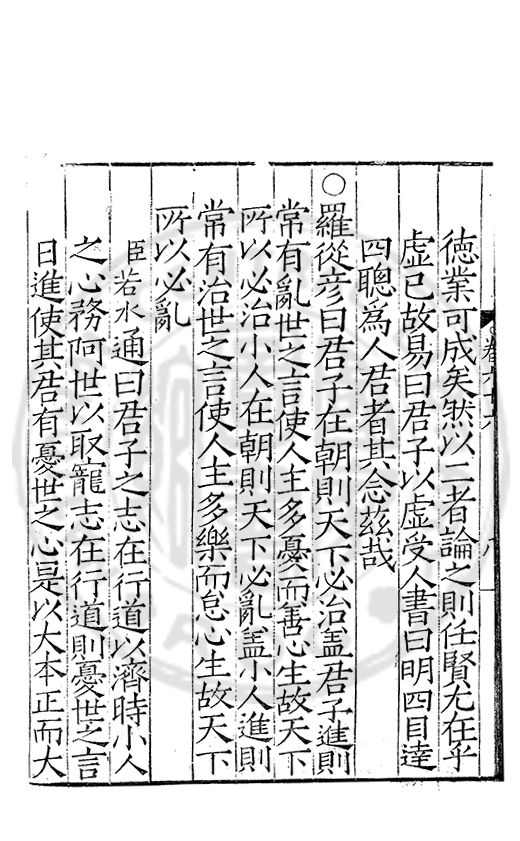 德業可成矣然以二者論之則任賢尤在乎
虛己故易曰君子以虛受人書曰明四目達
四聰爲人君者其念茲哉
○羅從彦曰君子在朝則天下必治盖君子進則
常有亂世之言使人主多憂而善心生故天下
所以必治小人在朝則天下必亂盖小人進則
常有治世之言使人主多樂而怠心生故天下
所以必亂
臣若水通曰君子之志在行道以濟時小人
之心務阿世以取寵志在行道則憂世之言
日進使其君有憂世之心是以大本正而大